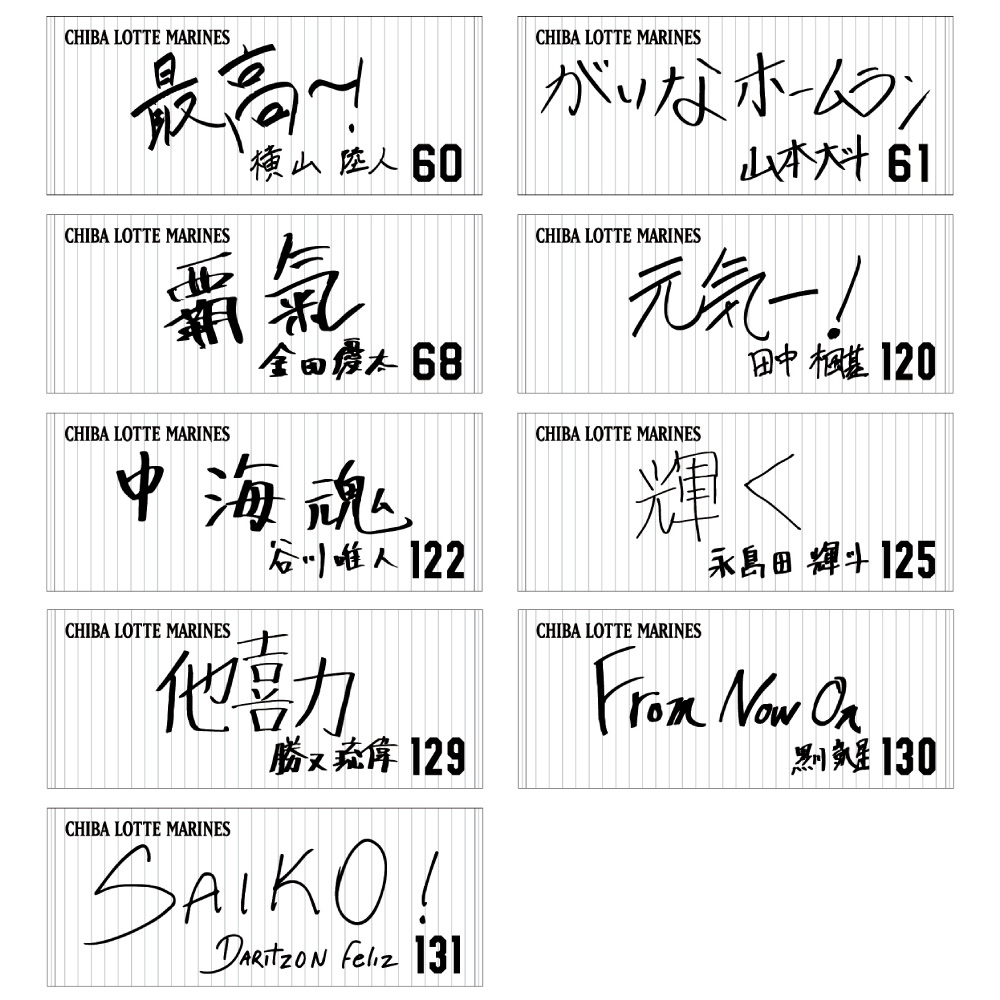 CHIBA LOTTE MARINES
最高〜!
横山 陸人 60
CHIBA LOTTE MARINES
がいなホームラン
山本大斗 61
CHIBA LOTTE MARINES
覇氣
金田優太 68
CHIBA LOTTE MARINES
元気ー!
田中 楓基 120
CHIBA LOTTE MARINES
中 海 魂
谷川唯人 122
CHIBA LOTTE MARINES
輝く
永島田 輝斗 125
CHIBA LOTTE MARINES
他喜力
勝又琉偉 129
CHIBA LOTTE MARINES
From Now On
黒川凱星 130
CHIBA LOTTE MARINES
SAIKO!
DARITZON Feliz 131